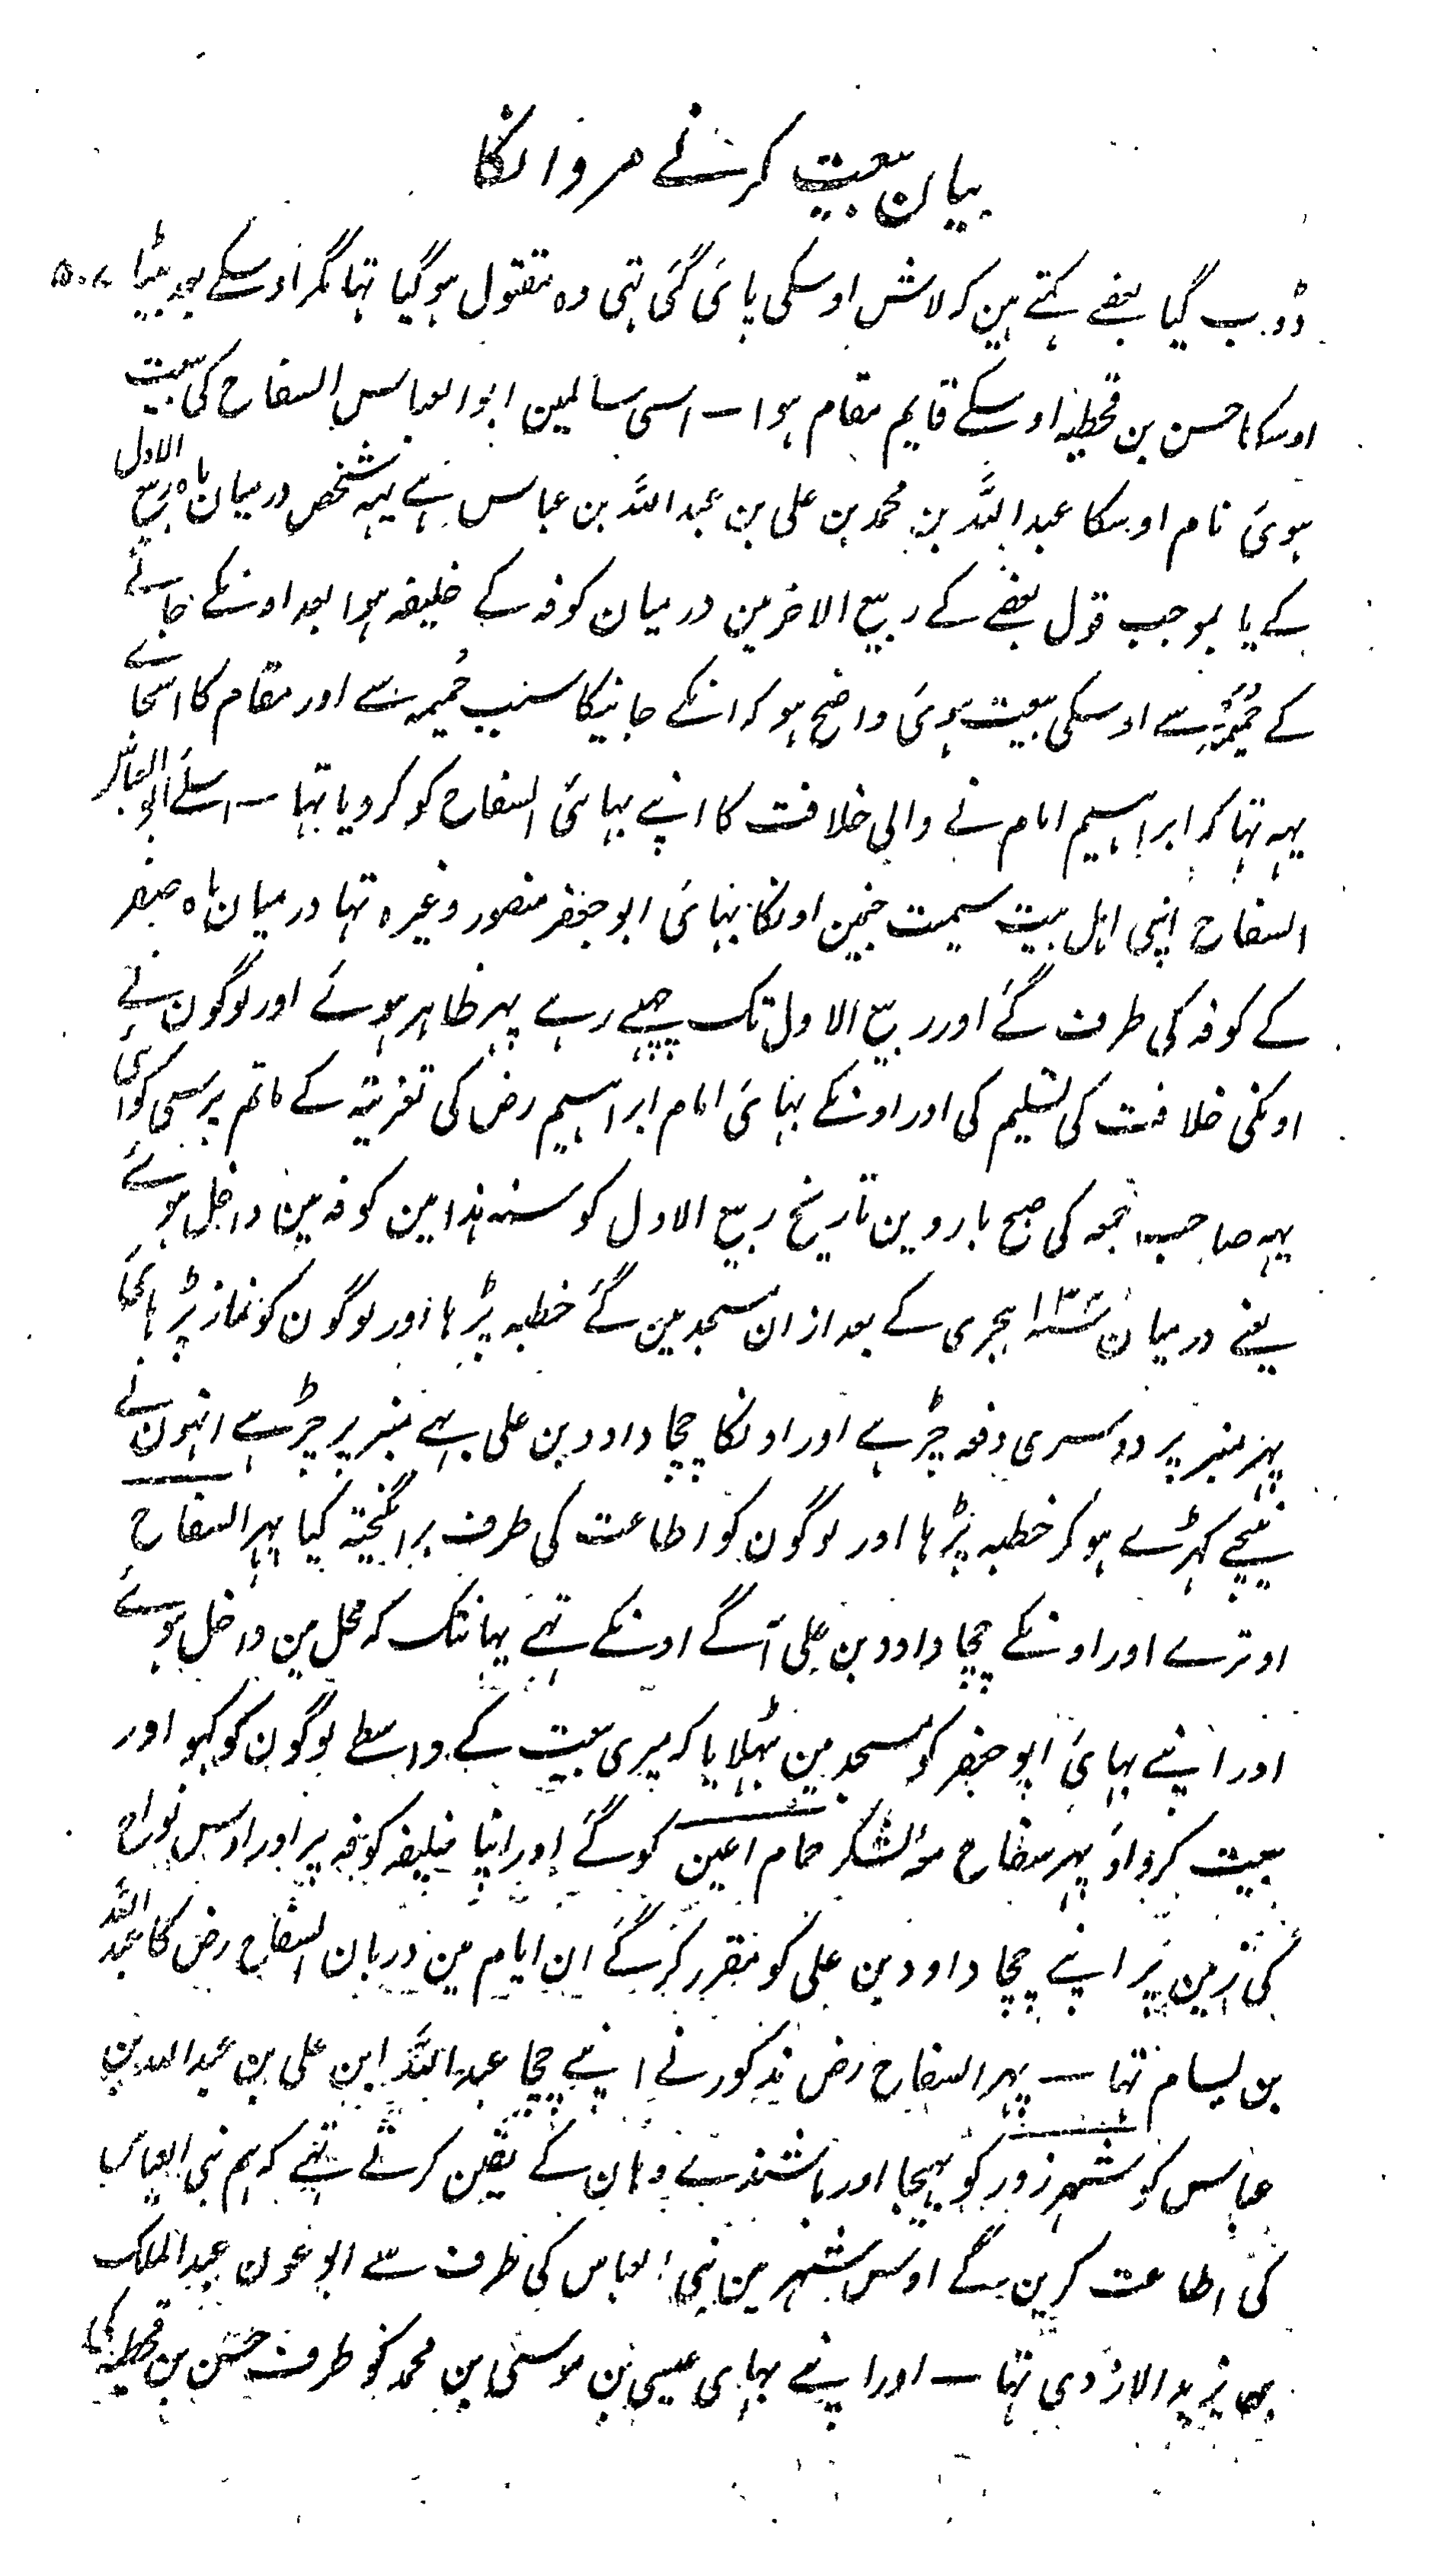 بیان بیعت کرنے مروانکا
۵۰۷
ڈوب گیا بعضے کہتے ہین کہ لاش اوسکی پائی گئی تہی وہ مقتول ہوگیا تہا مگر اوسکے بعد بیٹا
اوسکا حسن بن قحطبہ اوسکے قایم مقام ہوا — اسی سالمین ابو العباس السفاح کی بیعت
ہوئی نام اوسکا عبد اللہ بن محمد بن علی بن عبد اللہ بن عباس ہے یہہ شخص درمیان ماہ ربیع الاول
کے یا بموجب قول بعضے کے ربیع الاخرمین درمیان کوفہ کے خلیفہ ہوا بعد اونکے جانے
کے حُمَیمَہ سے اوسکی بیعت ہوئی واضح ہو کہ انکے جانیکا سبب حُمیمہ سے اور مقام کا اسجا سے
یہہ تہا کہ ابراہیم امام نے والی خلافت کا اپنے بہائی السفاح کو کردیا تہا — اسلئے ابو العباس
السفاح اپنی اہل بیت سمیت جنمین اونکا بہائی ابو جعفر منصور وغیرہ تہا درمیان ماہ صفر
کے کوفہ کی طرف گئے اور ربیع الاول تک چھپے رہے پہر ظاہر ہوئے اور لوگون نے
اونکی خلافت کی تسلیم کی اور اونکے بہائی امام ابراہیم رض کی تعزیتہ کے ماتم پرسی کو آئی
یہہ صاحب جمعہ کی صبح بارہوین تاریخ ربیع الاول کو سنہ ہذا مین کوفہ مین داخل ہوئے
یعنے درمیان سنہ ۱۳۲ ہجری کے بعد ازان مسجد مین گئے خطبہ پڑہا اور لوگون کو نماز پڑہائی
پہر منبر پر دوسری دفعہ چڑہے اور اونکا چچا داود بن علی بہی منبر پر چڑہے انہون نے
نیچے کہڑے ہوکر خطبہ پڑہا اور لوگون کو اطاعت کی طرف برانگیختہ کیا پہر السفاح
اوترے اور اونکے چچا داود بن علی آگے اونکے تہے یہانتک کہ محل مین داخل ہوئے
اور اپنے بہائی ابو جعفر کو مسجد مین بٹہلایا کہ میری بیعت کے واسطے لوگون کو کہو اور
بیعت کرواؤ پہر سفاح معہ لشکر حمام اعین کو گئے اور اپنا خلیفہ کوفہ پر اور اوس نواح
کی زمین پر اپنے چچا داود بن علی کو مقرر کرگئے ان ایام مین دربان السفاح رض کا عبد اللہ
بن بسام تہا — پہر السفاح رض مذکور نے اپنے چچا عبد اللہ ابن علی بن عبد اللہ بن
عباس کو شہر زور کو بہیجا اور باشندے وہان کے یقین کرتے تہے کہ ہم بنی العباس
کی اطاعت کرین گے اوس شہر مین بنی العباس کی طرف سے ابو عون عبد الملک
بن یزید الازدی تہا — اور اپنے بہائی عیسی بن موسی بن محمد کو طرف حسن بن قحطبہ کی